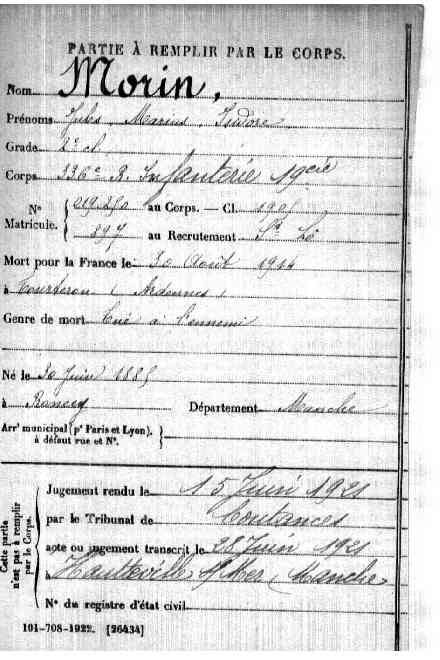 PARTIE À REMPLIR PAR LE CORPS.
Nom Morin,
Prénoms Jules Marius Isidore
Grade 2e cl
Corps 336e R. Infanterie 19eCie
No Matricule. 019.250 au Corps. — Cl. 1905
897 au Recrutement St Lô
Mort pour la France le 30 Août 1914
à Tourteron (Ardennes)
Genre de mort Tué à l'ennemi
Né le 30 Juin 1885
à Département Manche
Arrt municipal (pr Paris et Lyon),
à défaut rue et No.
Cette partie
n'est pas à remplir
par le Corps.
Jugement rendu le 15 Juin 1921
par le Tribunal de Coutances
acte ou jugement transcrit le 28 Juin 1921
Hautteville s/Mer (Manche
No du registre d'état civil
101-708-1922. [26434]